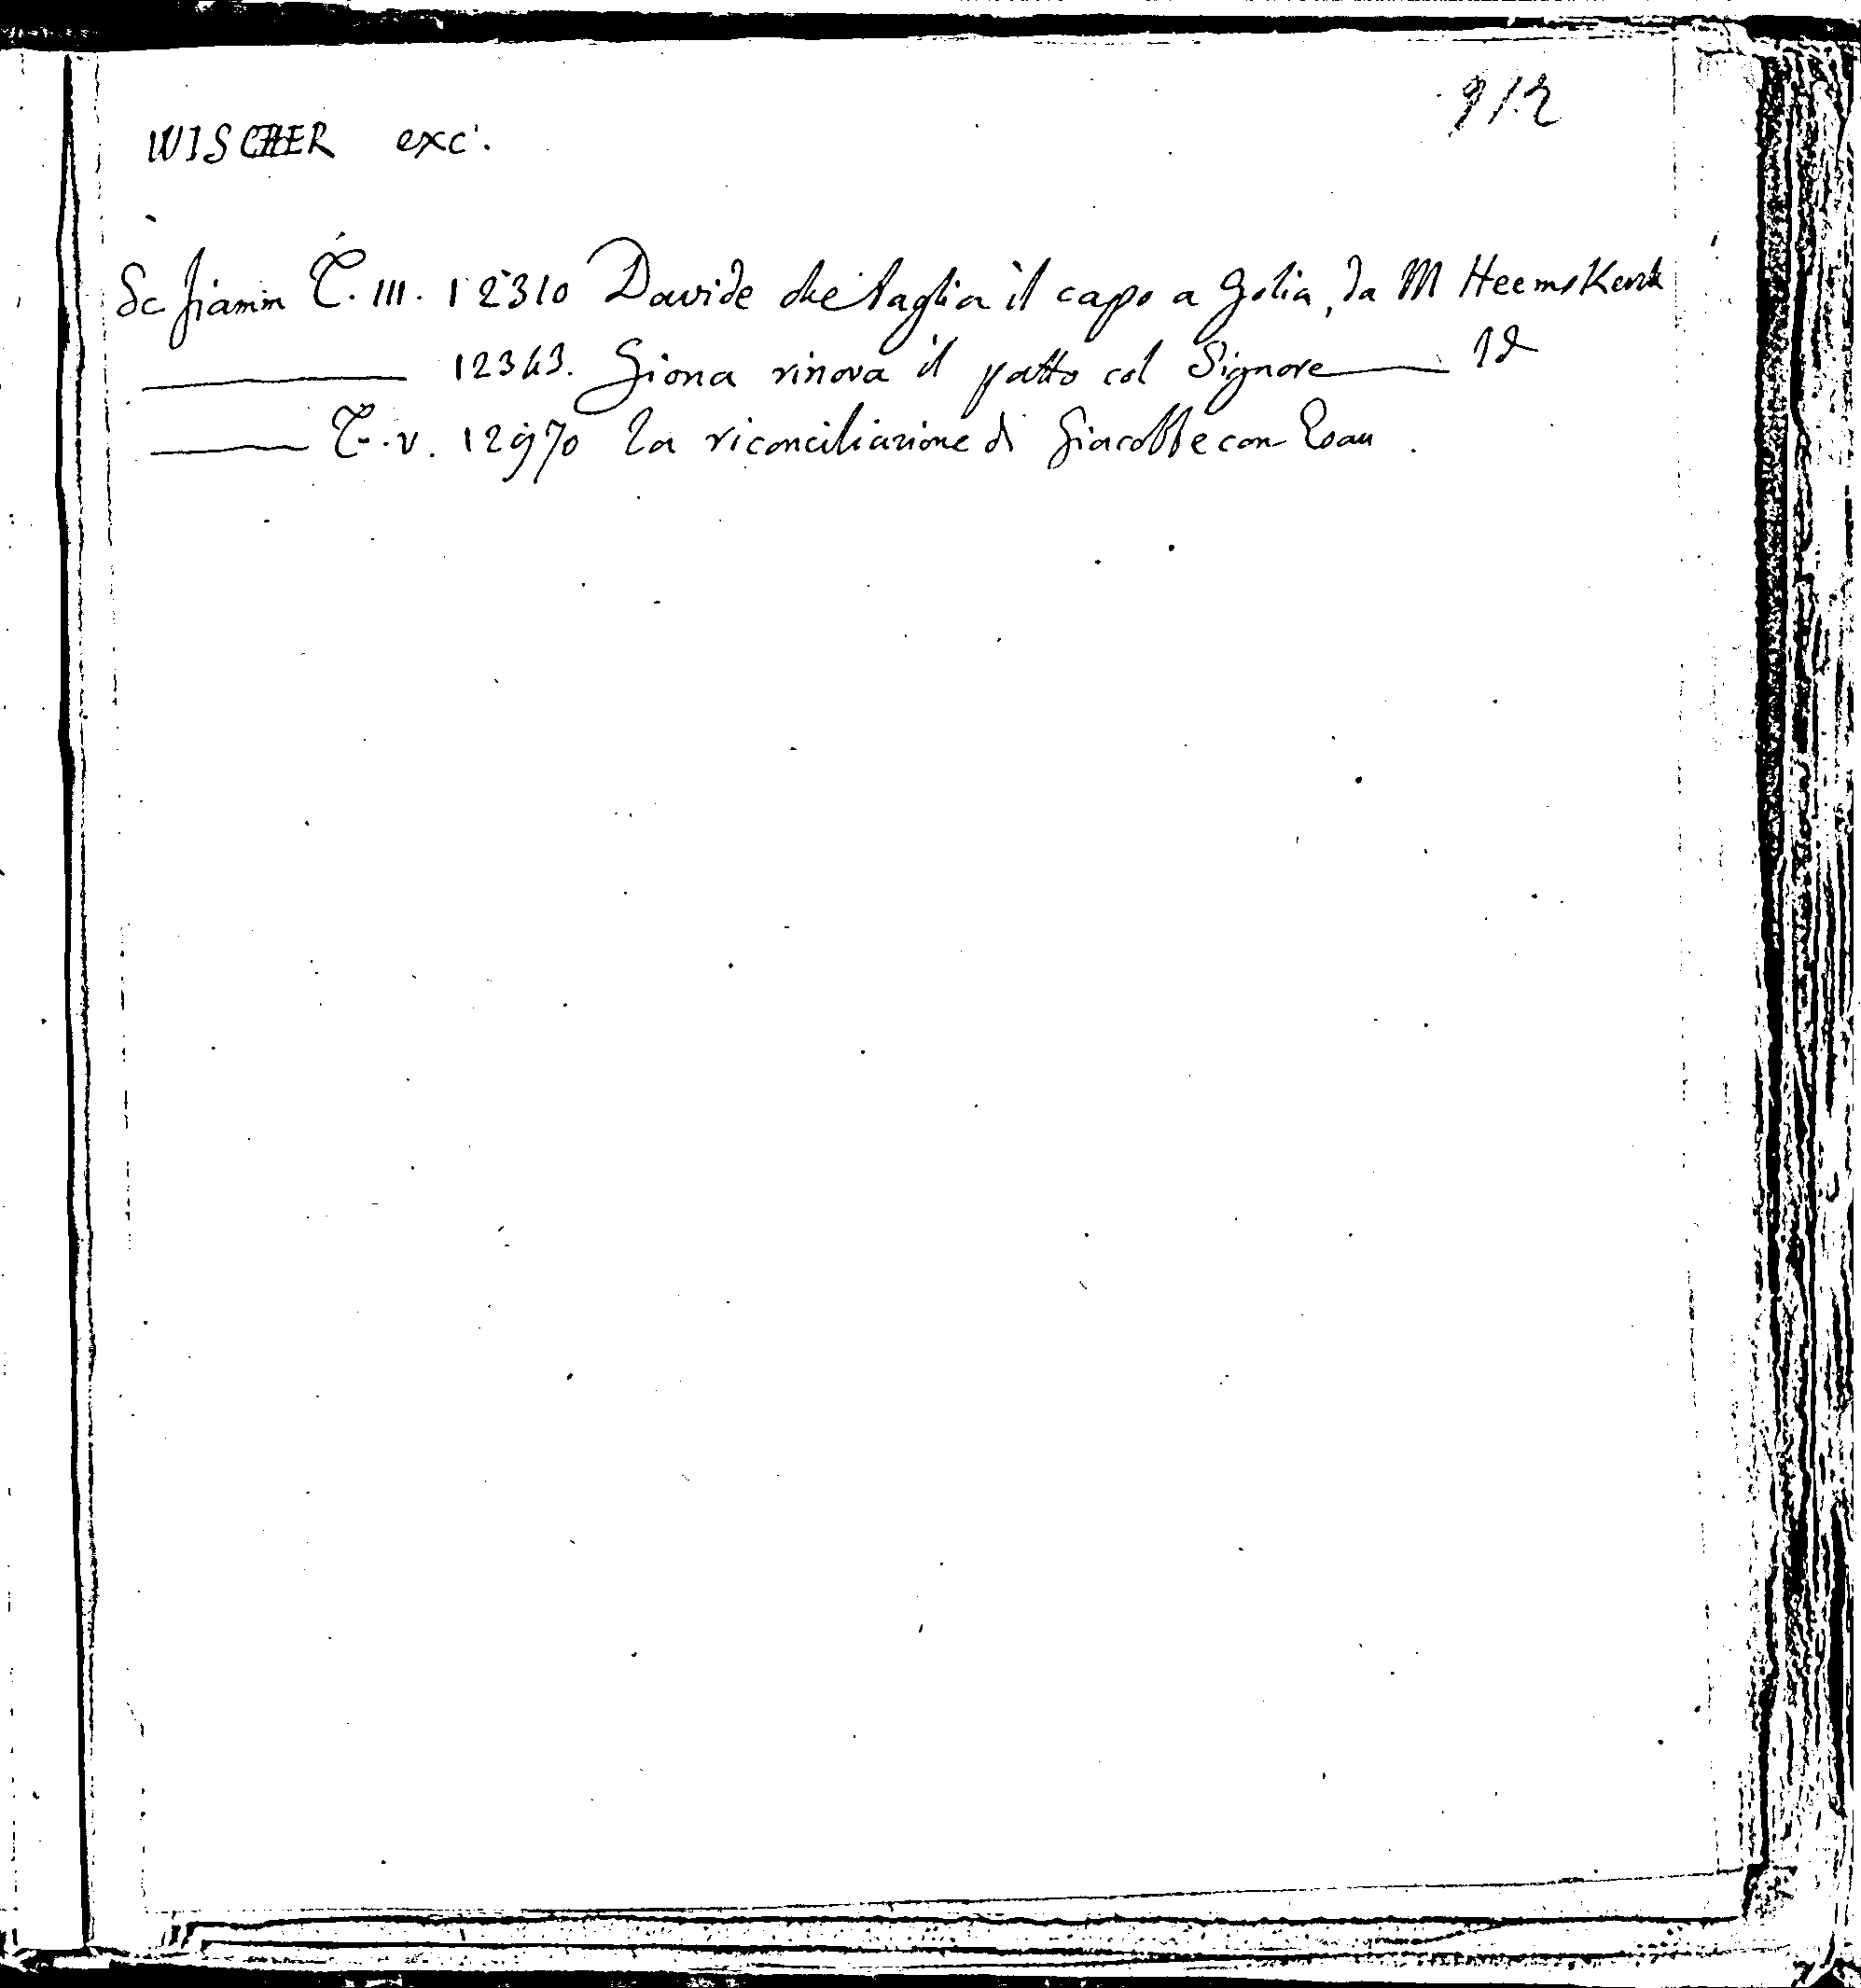 912
WISCHER exc.
Sc fiamm T. III. 12310 Davide che taglia il capo a Golia, da M Heemskerck
12343. Giona rinova il patto col Signore Id
T. V. 12970 La riconciliazione di Giacobbe con Esau.